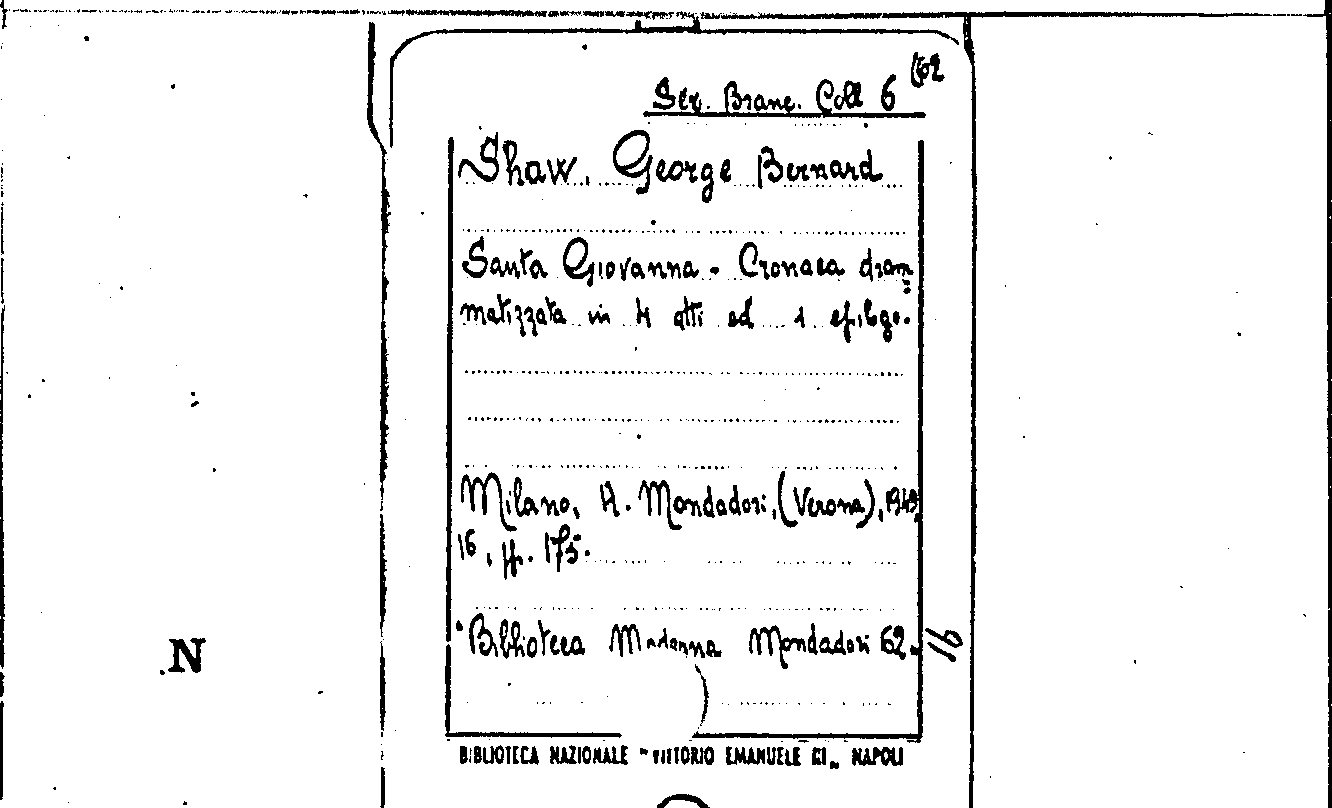 (62
Sez. Branc. Coll 6
Shaw, George Bernard
Santa Giovanna - Cronaca dram=
matizzata in 4 atti ed 1 epilogo.
Milano, A. Mondadori, (Verona), 1949,
16, pp. 175.
Biblioteca Moderna Mondadori 62.
16
N
BIBLIOTECA NAZIONALE "VITTORIO EMANUELE III„ NAPOLI